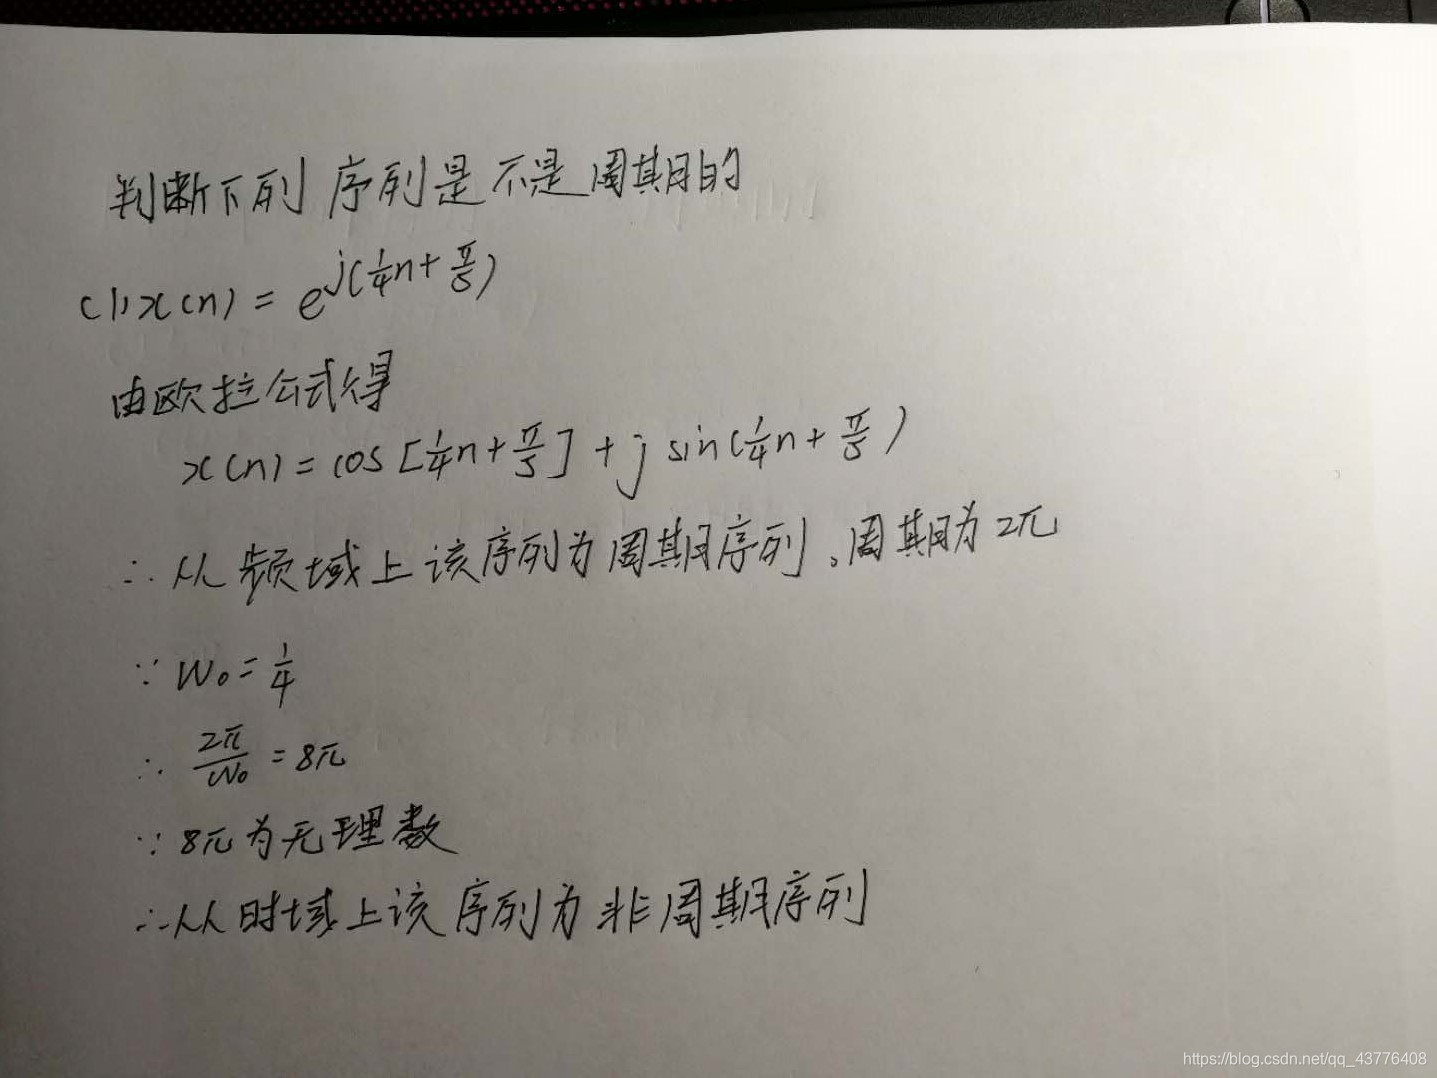 判断下列序列是不是周期的
(1) x(n) = e^{j(1/4 n + π/5)}
由欧拉公式得
x(n) = cos[1/4 n + π/5] + j sin(1/4 n + π/5)
∴ 从频域上该序列为周期序列。周期为2π
∵ W₀ = 1/4
∴ 2π/W₀ = 8π
∵ 8π为无理数
∴ 从时域上该序列为非周期序列
https://blog.csdn.net/qq_43776408